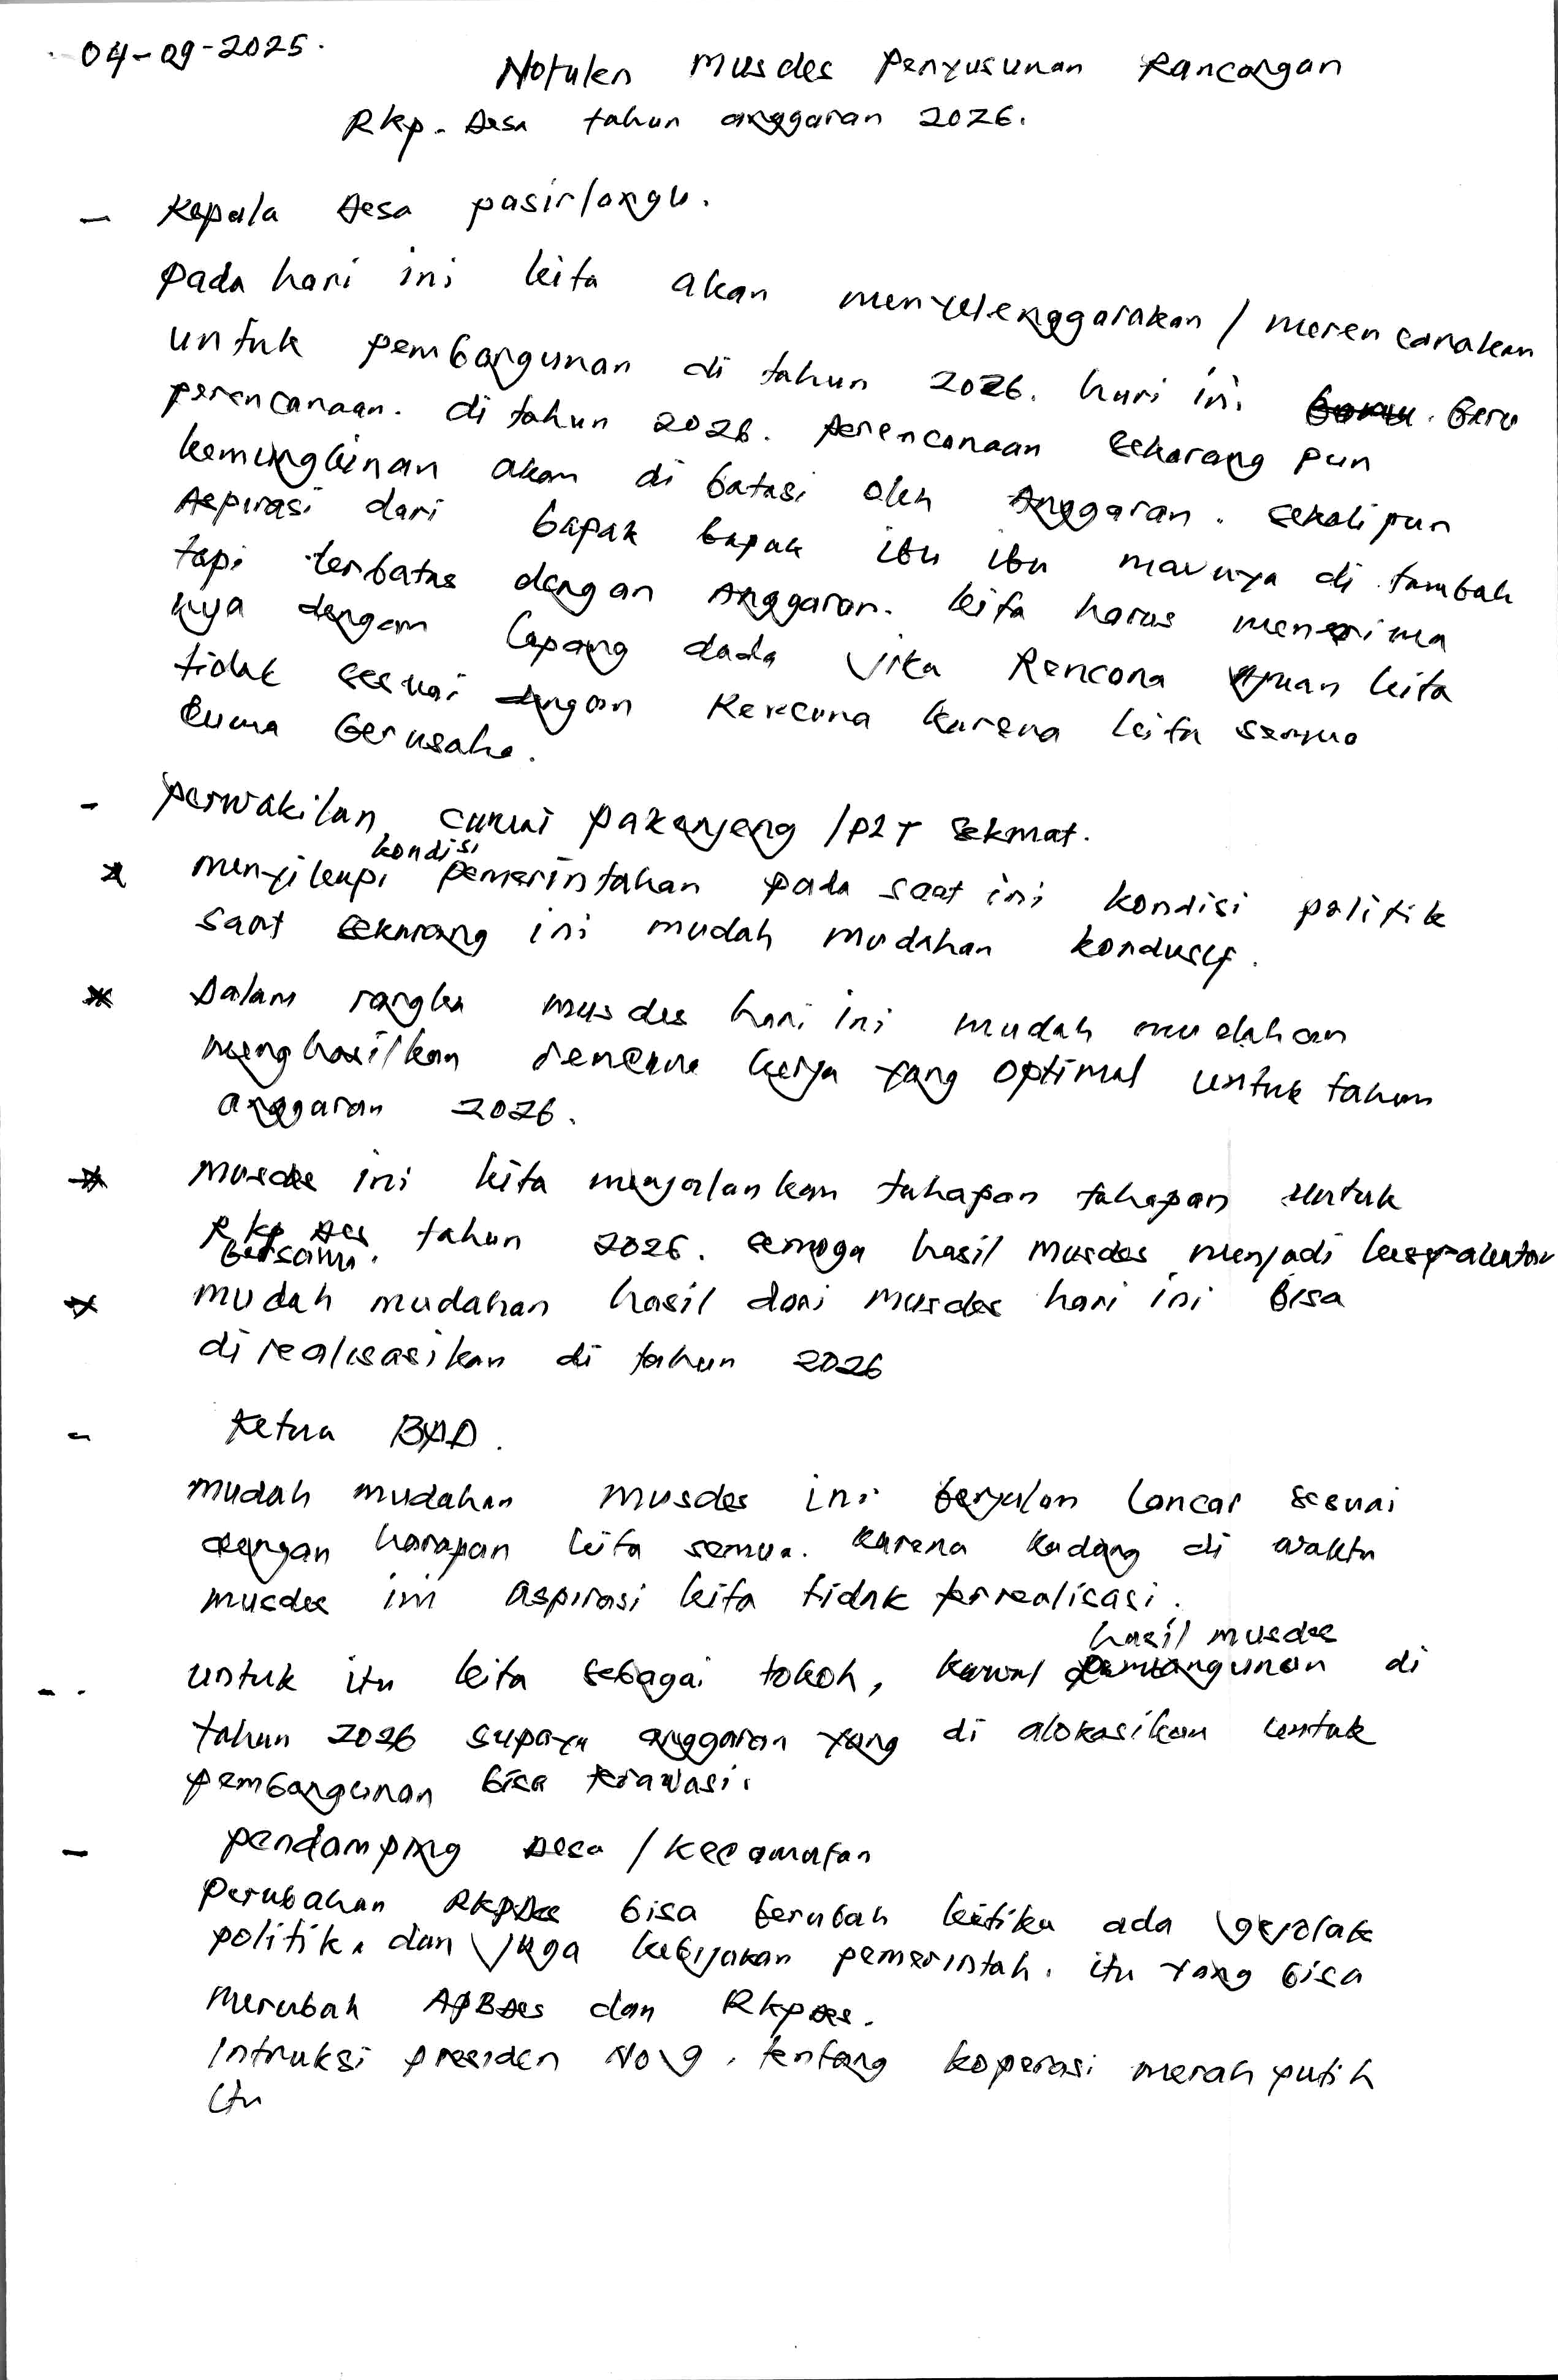 04-09-2025.
Notulen Musdes Penyusunan Rancangan
Rkp. Desa tahun anggaran 2026.
- Kepala Desa pasirlangu.
Pada hari ini kita akan menyelenggarakan / merencanakan
untuk pembangunan di tahun 2026. hari ini baru
perencanaan. di tahun 2026. perencanaan sekarang pun
kemungkinan akan di batasi oleh Anggaran. sekalipun
Aspirasi dari bapak bapak ibu ibu maunya di tambah
tapi terbatas dengan Anggaran. kita harus menerima
nya dengan lapang dada jika Rencana kita
tidak sesuai dengan Rencana karena kita semua
Cuma berusaha.
- perwakilan camat pak anjeng / PLT sekmat.
* menyikapi kondisi pemerintahan pada saat ini kondisi politik
saat sekarang ini mudah mudahan kondusif.
* Dalam rangka musdes hari ini mudah mudahan
menghasilkan rencana kerja yang optimal untuk tahun
anggaran 2026.
* Musdes ini kita menjalankan tahapan tahapan untuk
Rkp Des tahun 2026. semoga hasil musdes menjadi
bersama.
* mudah mudahan hasil dari musdes hari ini bisa
di realisasikan di tahun 2026
- Ketua BPD.
mudah mudahan musdes ini berjalan lancar sesuai
dengan harapan kita semua. karena kadang di waktu
musdes ini aspirasi kita tidak terealisasi.
- . untuk itu kita sebagai tokoh, kawal hasil musdes pembangunan di
tahun 2026 supaya anggaran yang di alokasikan untuk
pembangunan bisa terawasi.
- pendamping Desa / Kecamatan
perubahan RKPDes bisa berubah ketika ada gejolak
politik. dan juga kebijakan pemerintah. itu yang bisa
merubah APBDes dan Rkpdes.
Intruksi presiden No 9. tentang koperasi merah putih
itu